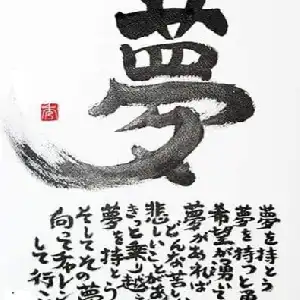 夢
夢を持とう
夢を持つと
希望が湧いて
夢があれば
どんな苦し
悲しいことがあ
きっと乗り越え
夢を持とう
そしてその夢
向ってチャレン
して行こ